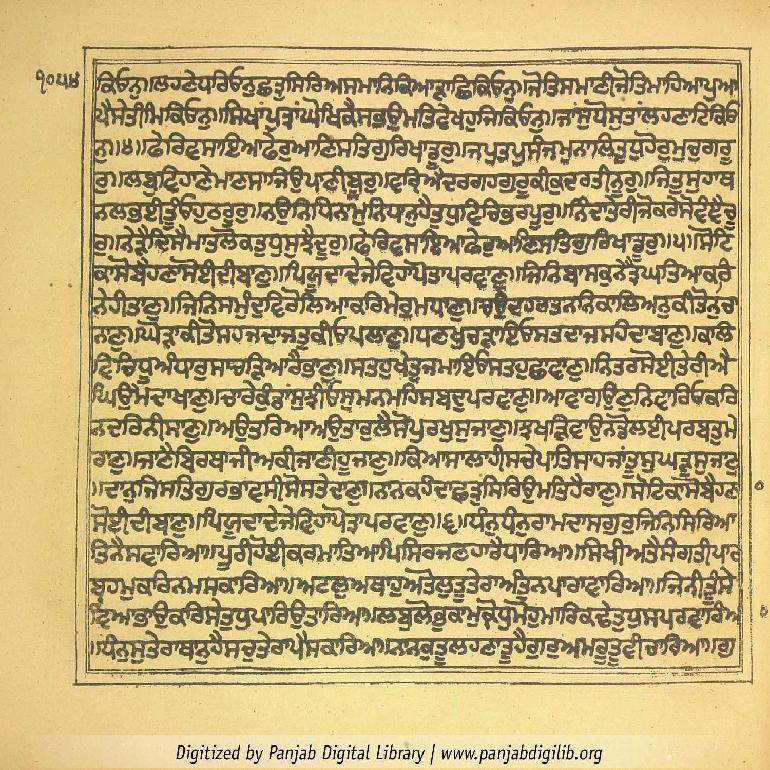 ੧੦੫੪
ਕਿਓਨੁ॥ਲਹਣੇਧਰਿਓਨੁਛਤੁਸਿਰਿਅਸਮਾਨਿਕਿਆੜਾਛਿਕਿਓਨੁ॥ਜੋਤਿਸਮਾਣੀਜੋਤਿਮਾਹਿਆਪੁਆ
ਪੈਸੇਤੀਮਿਕਿਓਨੁ॥ਸਿਖਾਂਪੁਤ੍ਰਾਂਘੋਖਿਕੈਸਭਉਮਤਿਵੇਖਹੁਜਿਕਿਓਨੁ॥ਜਾਂਸੁਧੋਸੁਤਾਂਲਹਣਾਟਿਕਿਓ
ਨੁ॥੪॥ਫੇਰਿਵਸਾਇਆਫੇਰੁਆਣਿਸਤਿਗੁਰਿਖਾਡੂਰੁ॥ਜਪੁਤਪੁਸੰਜਮੁਨਾਲਿਤੁਧੁਹੋਰੁਮੁਚੁਗਰੂ
ਰੁ॥ਲਬੁਵਿਣਾਹੇਮਾਣਸਾਜਿਉਪਾਣੀਬੂਰੁ॥ਵਰਿਐਦਰਗਹਗੁਰੂਕੀਕੁਦਰਤੀਨੂਰੁ॥ਜਿਤੁਸੁਹਾਥ
ਨਲਭਈਤੂੰਓਹੁਠਰੂਰੁ॥ਨਉਨਿਧਿਨਾਮੁਨਿਧਾਨੁਹੈਤੁਧੁਵਿਚਿਭਰਪੂਰੁ॥ਨਿੰਦਾਤੇਰੀਜੋਕਰੇਸੋਵੰਞੈਚੂ
ਰੁ॥ਨੇੜੈਦਿਸੈਮਾਤਲੋਕਤੁਧੁਸੁਝੈਦੂਰੁ॥ਫੇਰਿਵਸਾਇਆਫੇਰੁਆਣਿਸਤਿਗੁਰਿਖਾਡੂਰੁ॥੫॥ਸੋਟਿ
ਕਾਸੋਬੈਹਣਾਸੋਈਦੀਬਾਣੁ॥ਪਿਯੂਦਾਦੇਜੇਵਿਹਾਪੋਤਾਪਰਵਾਣੁ॥ਜਿਨਿਬਾਸਕੁਨੇਤ੍ਰੈਘਤਿਆਕਰਿ
ਨੇਹੀਤਾਣੁ॥ਜਿਨਿਸਮੁੰਦੁਵਿਰੋਲਿਆਕਰਿਮੇਰੁਮਧਾਣੁ॥ਚਉਦਹਰਤਨਨਿਕਾਲਿਅਨੁਕੀਤੋਨੁਚਾ
ਨਣੁ॥ਘੋੜਾਕੀਤੋਸਹਜਦਾਜਤੁਕੀਓਪਲਾਣੁ॥ਧਣਖੁਚੜਾਇਓਸਤਦਾਜਸਹੰਦਾਬਾਣੁ॥ਕਲਿ
ਵਿਚਿਧੂਅੰਧਾਰੁਸਾਚੜਿਆਰੈਭਾਣੁ॥ਸਤਹੁਖੇਤੁਜਮਾਇਓਸਤਹੁਛਾਵਾਣੁ॥ਨਿਤਰਸੋਈਤੇਰੀਐ
ਘਿਉਮੈਦਾਖਾਣੁ॥ਚਾਰੇਕੁੰਡਾਂਸੁਝੀਓਸੁਮਨਮਹਿਸਬਦੁਪਰਵਾਣੁ॥ਆਵਾਗਉਣੁਨਿਵਾਰਿਓਕਰਿ
ਨਦਰਿਨੀਸਾਣੁ॥ਅਉਤਰਿਆਅਉਤਾਰੁਲੈਸੋਪੁਰਖੁਸੁਜਾਣੁ॥ਝਖੜਿਵਾਉਨਡੋਲਈਪਰਬਤੁਮੇ
ਰਾਣੁ॥ਜਾਣੈਬਿਰਥਾਜੀਅਕੀਜਾਣੀਹੂਜਾਣੁ॥ਕਿਆਸਾਲਾਹੀਸਚੇਪਾਤਿਸਾਹਜਾਂਤੂਸੁਘੜੁਸੁਜਾਣੁ
॥ਦਾਨੁਜਿਸਤਿਗੁਰਭਾਵਸੀਸੋਸਤੇਦਾਣੁ॥ਨਾਨਕਹੰਦਾਛਤ੍ਰੁਸਿਰਿਉਮਤਿਹੈਰਾਣੁ॥ਸੋਟਿਕਾਸੋਬੈਹਣਾ
ਸੋਈਦੀਬਾਣੁ॥ਪਿਯੂਦਾਦੇਜੇਵਿਹਾਪੋਤ੍ਰਾਪਰਵਾਣੁ॥੬॥ਧੰਨੁਧੰਨੁਰਾਮਦਾਸਗੁਰੁਜਿਨਿਸਿਰਿਆ
ਤਿਨੈਸਵਾਰਿਆ॥ਪੂਰੀਹੋਈਕਰਾਮਾਤਿਆਪਿਸਿਰਜਣਹਾਰੈਧਾਰਿਆ॥ਸਿਖੀਅਤੈਸੰਗਤੀਪਾਰ
ਬ੍ਰਹਮੁਕਰਿਨਮਸਕਾਰਿਆ॥ਅਟਲੁਅਥਾਹੁਅਤੋਲੁਤੂਤੇਰਾਅੰਤੁਨਪਾਰਾਵਾਰਿਆ॥ਜਿਨੀਤੂੰਸੇ
ਵਿਆਭਾਉਕਰਿਸੇਤੁਧੁਪਾਰਿਉਤਾਰਿਆ॥ਲਬੁਲੋਭੁਕਾਮੁਕ੍ਰੋਧੁਮੋਹੁਮਾਰਿਕਢੇਤੁਧੁਸਪਰਵਾਰਿਆ
॥ਧੰਨੁਸੁਤੇਰਾਥਾਨੁਹੈਸਚੁਤੇਰਾਪੈਸਕਾਰਿਆ॥ਨਾਨਕੁਤੂਲਹਣਾਤੂਹੈਗੁਰੁਅਮਰੁਤੂਵੀਚਾਰਿਆ॥ਗੁ
Digitized by Panjab Digital Library | www.panjabdigilib.org